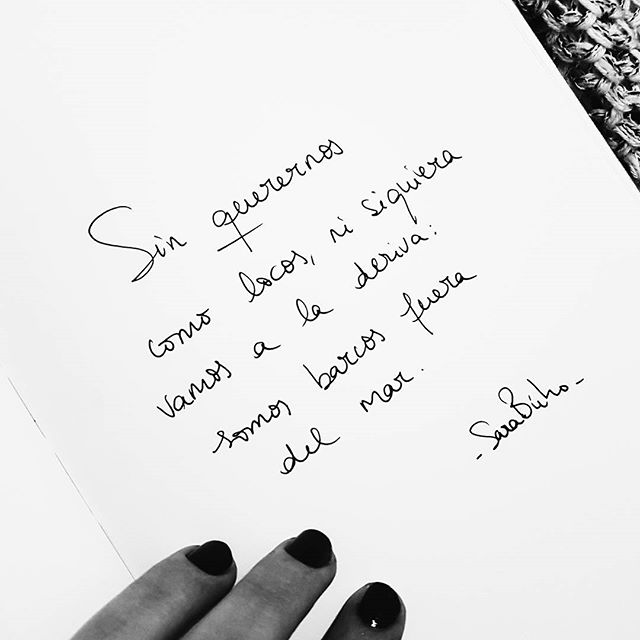 Sin querernos
como locos, ni siquiera
vamos a la deriva:
somos barcos fuera
del mar.
-Sara Búho-